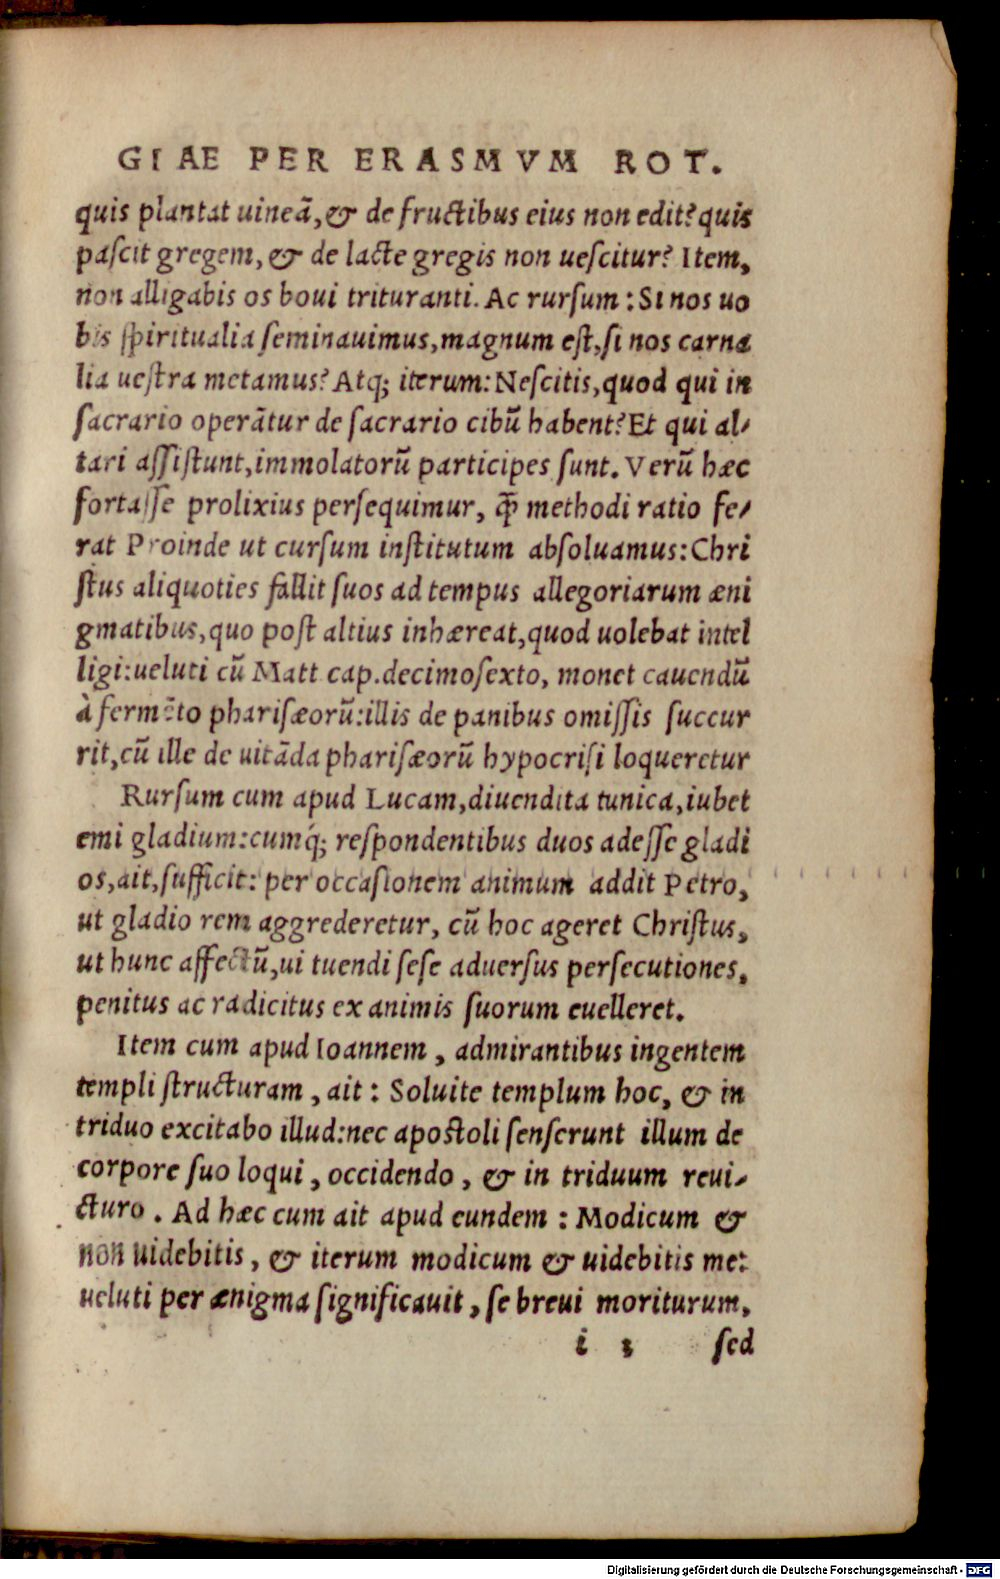 GIAE PER ERASMVM ROT.
quis plantat uineā, & de fructibus eius non edit? quis
paſcit gregem, & de lacte gregis non ueſcitur? Item,
non alligabis os boui trituranti. Ac rurſum: Si nos uo
bis ſpiritualia ſeminauimus, magnum eſt, ſi nos carna
lia ueſtra metamus? Atq; iterum: Neſcitis, quod qui in
ſacrario operātur de ſacrario cibū habent? Et qui al-
tari aſſiſtunt, immolatorū participes ſunt. Verū hæc
fortaſſe prolixius perſequimur, ꝙ̄ methodi ratio fe-
rat Proinde ut curſum inſtitutum abſoluamus: Chri
ſtus aliquoties fallit ſuos ad tempus allegoriarum æni
gmatibus, quo poſt altius inhæreat, quod uolebat intel
ligi: ueluti cū Matt cap. decimoſexto, monet cauendū
à fermēto phariſæorū: illis de panibus omiſſis ſuccur
rit, cū ille de uitāda phariſæorū hypocriſi loqueretur
Rurſum cum apud Lucam, diuendita tunica, iubet
emi gladium: cumq́; reſpondentibus duos adeſſe gladi
os, ait, ſufficit: per occaſionem animum addit Petro,
ut gladio rem aggrederetur, cū hoc ageret Chriſtus,
ut hunc affectū, ui tuendi ſeſe aduerſus perſecutiones,
penitus ac radicitus ex animis ſuorum euelleret.
Item cum apud Ioannem, admirantibus ingentem
templi ſtructuram, ait: Soluite templum hoc, & in
triduo excitabo illud: nec apoſtoli ſenſerunt illum de
corpore ſuo loqui, occidendo, & in triduum reui-
cturo. Ad hæc cum ait apud eundem: Modicum &
non uidebitis, & iterum modicum & uidebitis me:
ueluti per ænigma ſignificauit, ſe breui moriturum,
i 3 ſed
Digitalisierung gefördert durch die Deutsche Forschungsgemeinschaft - DFG